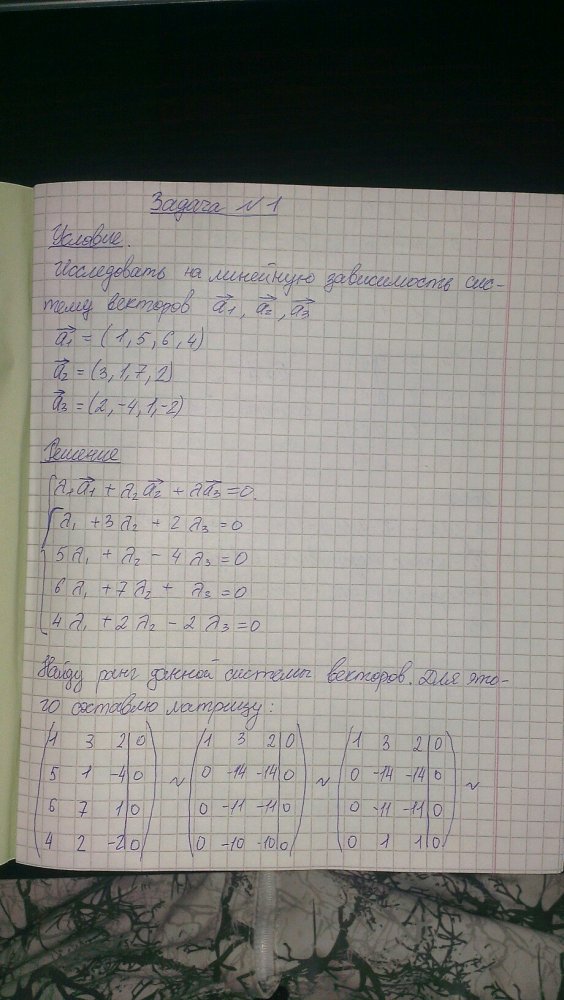 Задача №1
Условие.
Исследовать на линейную зависимость сис-
тему векторов a₁, a₂, a₃
a₁ = (1, 5, 6, 4)
a₂ = (3, 1, 7, 2)
a₃ = (2, -4, 1, -2)
Решение
λ₁a₁ + λ₂a₂ + λa₃ = 0.
λ₁ + 3λ₂ + 2λ₃ = 0
5λ₁ + λ₂ - 4λ₃ = 0
6λ₁ + 7λ₂ + λ₃ = 0
4λ₁ + 2λ₂ - 2λ₃ = 0
Найду ранг данной системы векторов. Для это-
го составлю матрицу:
1 3 2|0 1 3 2|0 1 3 2|0
5 1 -4|0 ~ 0 -14 -14|0 ~ 0 -14 -14|0 ~
6 7 1|0 0 -11 -11|0 0 -11 -11|0
4 2 -2|0 0 -10 -10|0 0 1 1|0